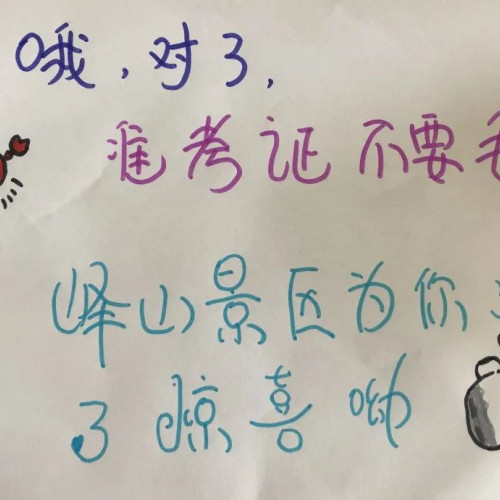 哦,对了,
准考证不要
峄山景区为你
了惊喜呦